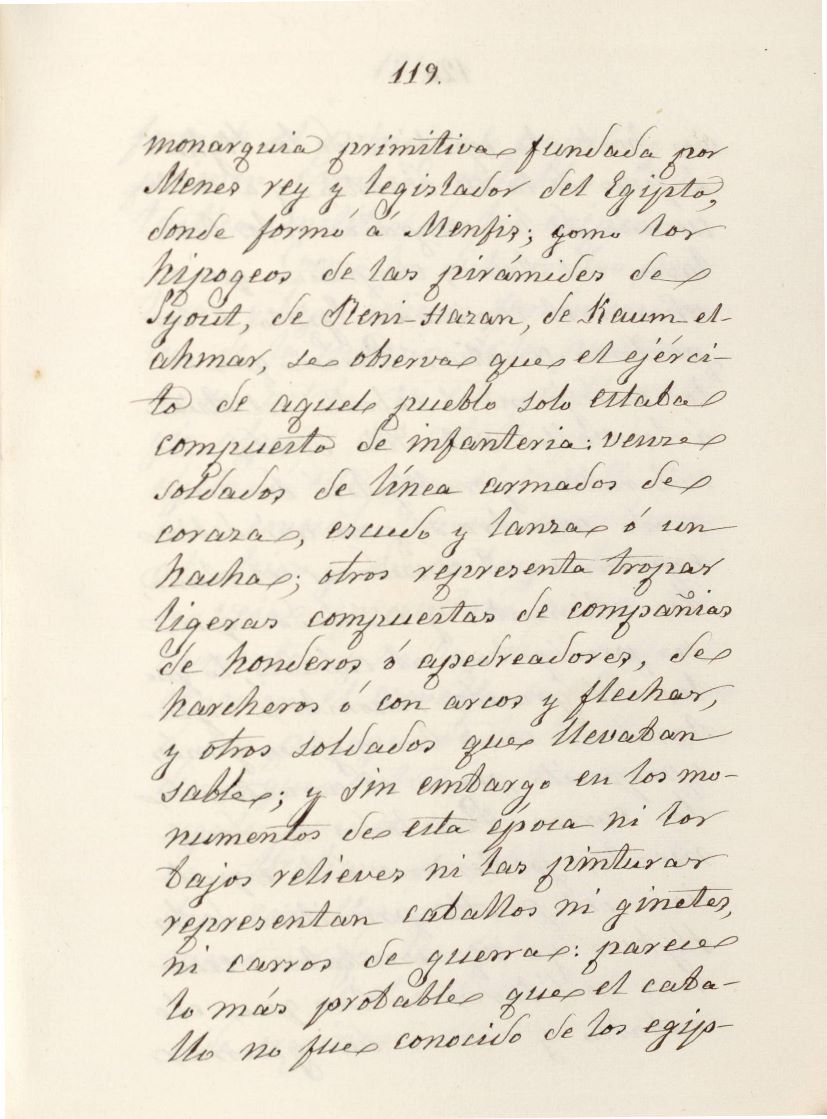 119.
monarquia primitiva fundada por
Menes rey y legislador del Egipto,
donde formó á Menfis; como los
hipogeos de las pirámides de
Syout, de Reni-Hazan, de Kaum el-
ahmar, se observa que el ejérci-
to de aquel pueblo solo estaba
compuesto de infanteria: vense
soldados de línea armados de
coraza, escudo y lanza ó un
hacha; otros representa tropas
ligeras compuestas de compañias
de honderos ó apedreadores, de
harcheros ó con arcos y flechas,
y otros soldados que llevaban
sable; y sin embargo en los mo-
numentos de esta época ni los
bajos relieves ni las pinturas
representan caballos ni ginetes,
ni carros de guerra: parece
lo más probable que el caba-
llo no fue conocido de los egip-